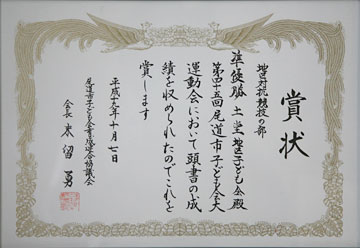 賞状
地区対抗競技の部
準優勝 土堂地区子ども会殿
第四十五回尾道市子ども会大
運動会において頭書の成
績を収められたのでこれを
賞します
平成十九年十月七日
尾道市子ども会
会長
勇